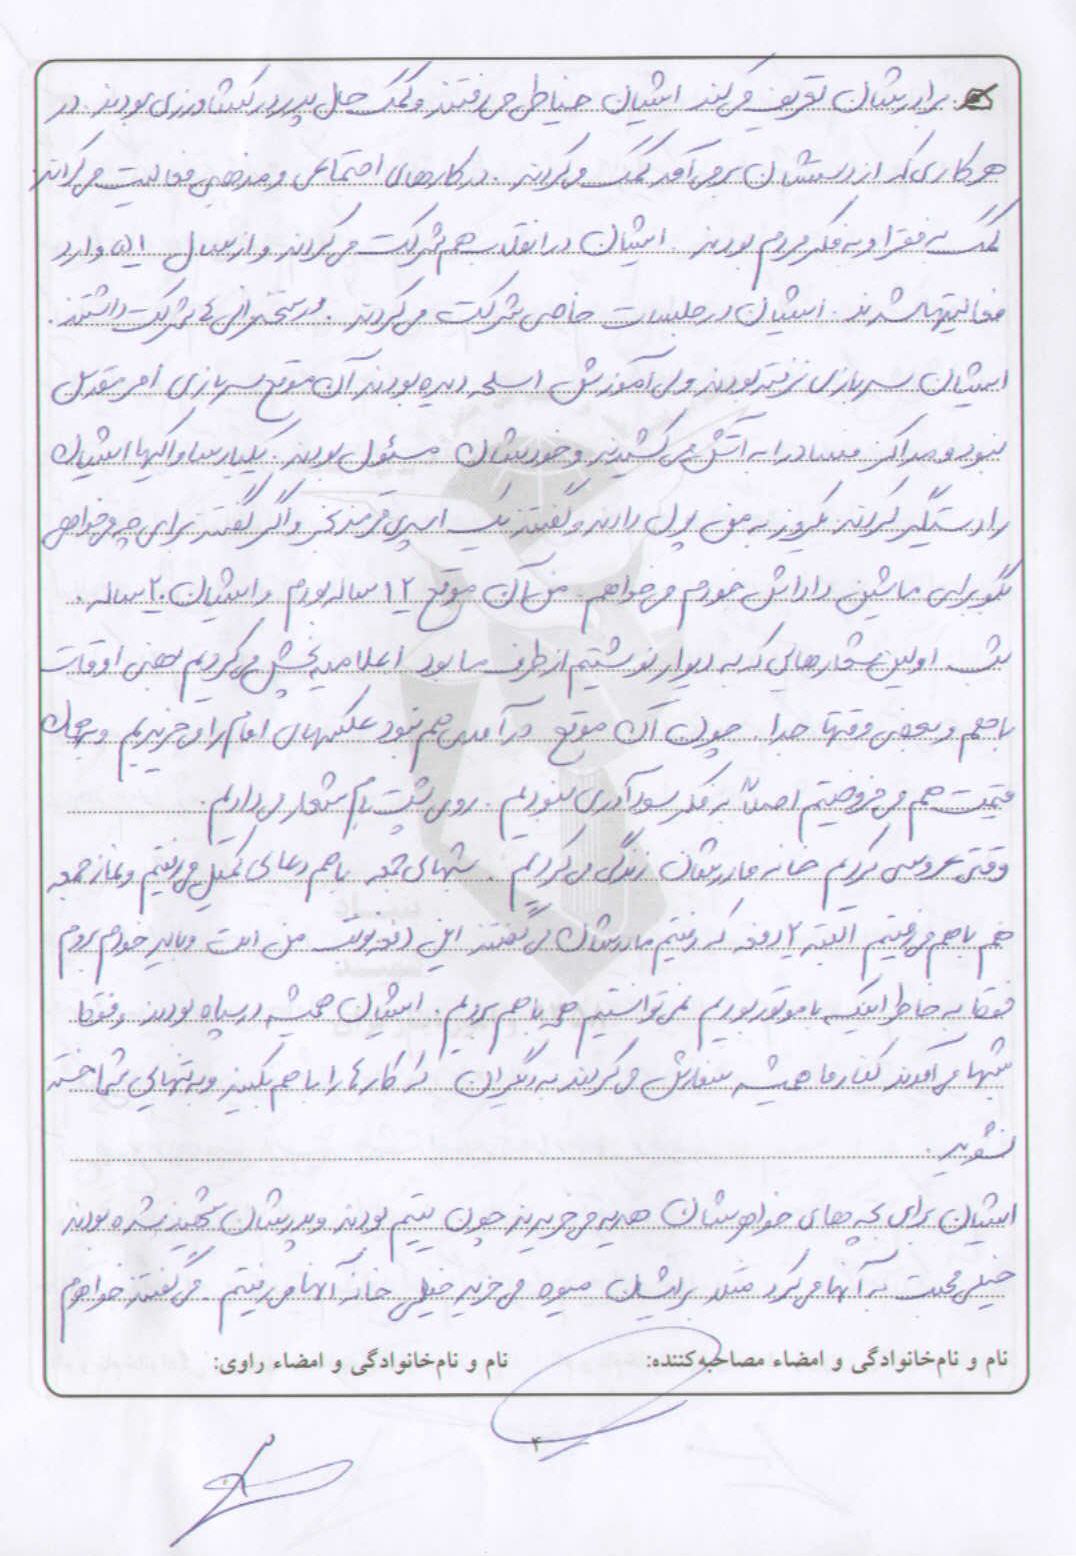 برادرشان تعریف می کند ایشان خیاطی می رفتند و کمک حال پدر در کشاورزی بودند. در
هر کاری که از دستشان برمی آمد کمک می کردند. در کارهای اجتماعی و مذهبی فعالیت می کردند
کمک به فقرا و به فکر مردم بودند. ایشان در انقلاب هم شرکت می کردند و از سال ۵۱ وارد
فعالیتها شدند. ایشان در جلسات خاص شرکت می کردند. در سخنرانی ها شرکت داشتند.
ایشان سربازی نرفته بودند ولی آموزش اسلحه دیده بودند آن موقع سربازی امر مقدس
نبود و مراکز فساد را به آتش می کشیدند و خودشان مسئول بودند. یکبار ساواکیها ایشان
را دستگیر کردند یکروز به من پول دادند و گفتند یک اسپری قرمز بخر و اگر گفتند برای چه می خواهی
بگو برای ماشین داداش خودم می خواهم. من آن موقع ۱۲ ساله بودم و ایشان ۲۰ ساله.
شب اولین شعارهایی که به دیوار نوشتیم از طرف ما بود اعلامیه پخش می کردیم بعضی اوقات
با هم و بعضی وقتها جدا. چون آن موقع درآمدی هم نبود عکسهای امام را می خریدیم و به همان
قیمت هم می فروختیم اصلاً به فکر سودآوری نبودیم. روی پشت بام شعار می دادیم.
وقتی عروسی کردیم خانه مادرشان زندگی می کردیم. شبهای جمعه با هم دعای کمیل می رفتیم و نماز جمعه
هم با هم می رفتیم البته ۲ دفعه که رفتیم مادرشان می گفتند این دفعه نوبت من است و باید خودم بروم
فقط به خاطر اینکه با موتور بودیم نمی توانستیم همه با هم برویم. ایشان همیشه در سپاه بودند و فقط
شبها می آمدند کنار ما همیشه سفارش می کردند به دیگران که کارها را با هم بکنید و به تنهایی شما خسته
نشوید.
ایشان برای بچه های خواهرشان هدیه می خریدند چون یتیم بودند و پدرشان شهید شده بودند
خیلی محبت به آنها می کرد مثلا برایشان میوه می خرید خیلی خانه آنها می رفتیم. می گفتند خواهرم
نام و نام‌خانوادگی و امضاء مصاحبه‌کننده: نام و نام‌خانوادگی و امضاء راوی:
۴